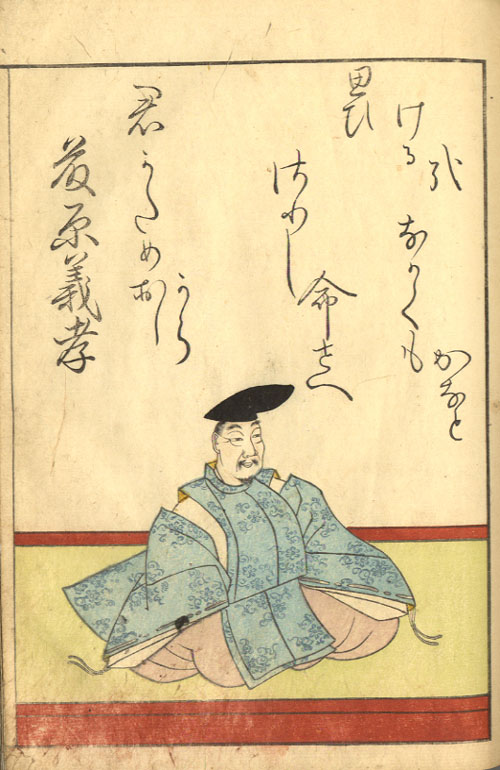 藤原義孝
君かためおし
から
さりし
命さへ
なかくも
かなと
思ひ
ける
哉